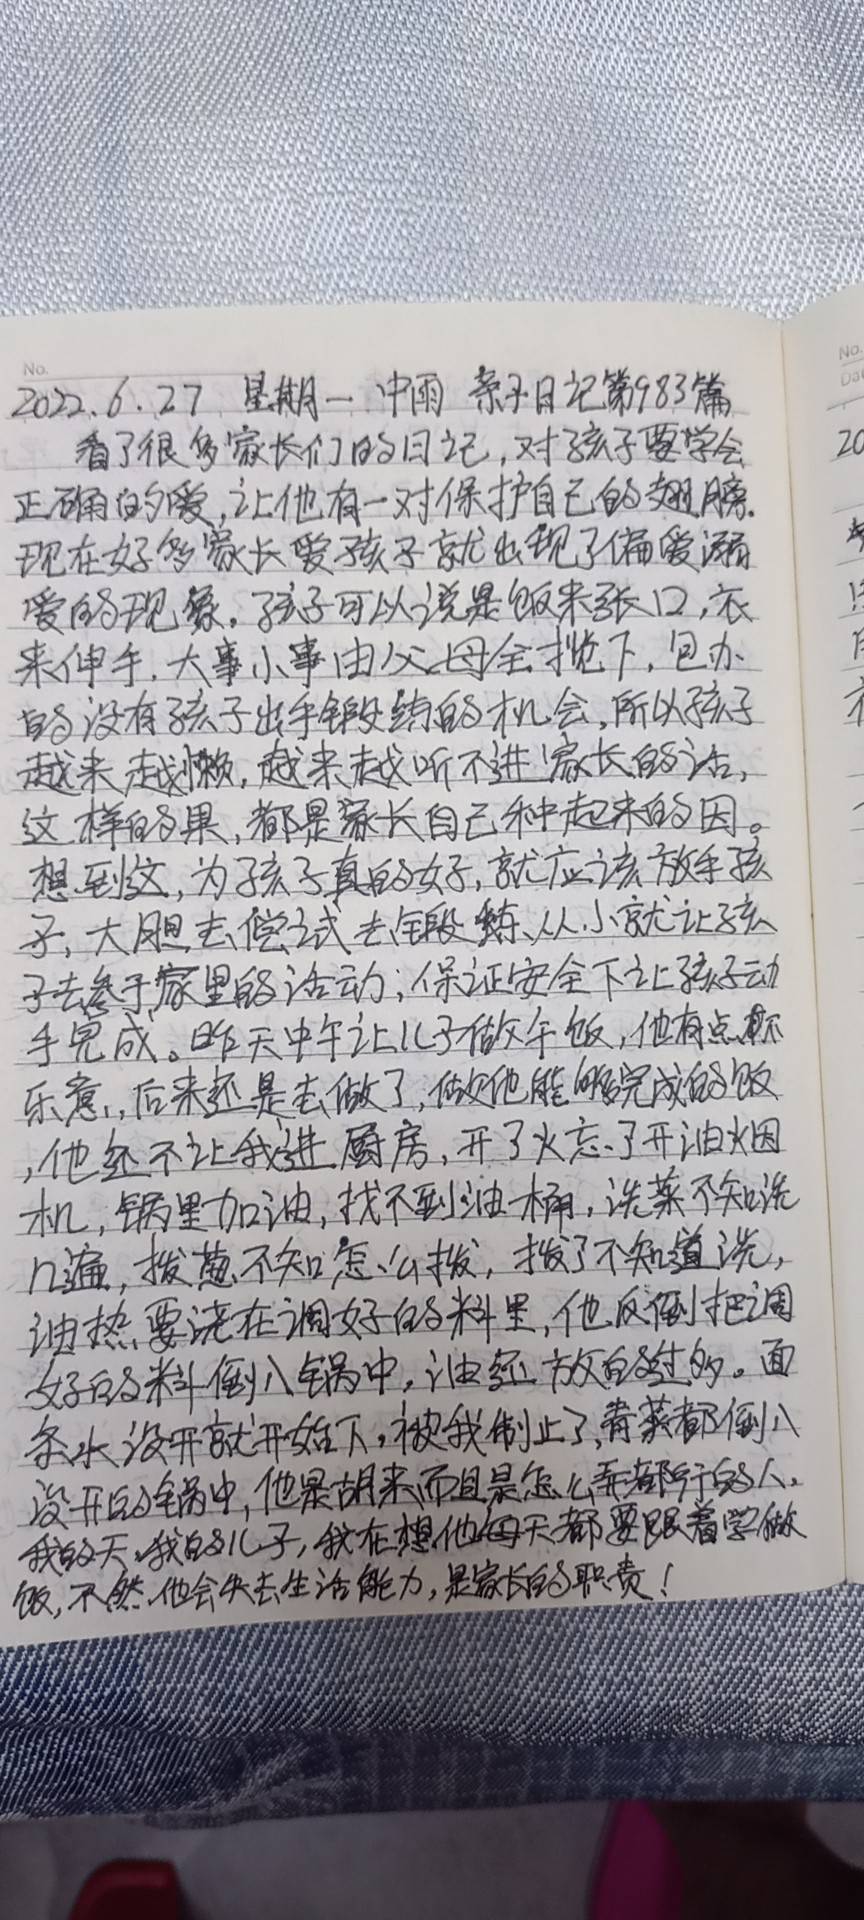 No.
2022.6.27 星期一 中雨 亲子日记第983篇
看了很多家长们的日记，对孩子要学会
正确的爱，让他有一对保护自己的翅膀.
现在好多家长爱孩子就出现了偏爱溺
爱的现象。孩子可以说是饭来张口，衣
来伸手，大事小事由父母全揽下，包办
的没有孩子出手锻练的机会，所以孩子
越来越懒，越来越听不进家长的话，
这样的果，都是家长自己种起来的因。
想到这，为孩子真的好，就应该放手孩
子，大胆去偿试去锻练、从小就让孩
子去参于家里的活动；保证安全下让孩子动
手完成。昨天中午让儿子做午饭，他有点不
乐意，后来还是去做了，做他能够完成的饭
，他还不让我进厨房，开了火忘了开油烟
机，锅里加油，找不到油桶，洗菜不知洗
几遍，拨葱不知怎么拨，拨了不知道洗，
油热要浇在调好的料里，他反倒把调
好的料倒入锅中，油还放的过多。面
条水没开就开始下，被我制止了，青菜都倒入
没开的锅中，他是胡来而且是怎么弄都行的人。
我的天，我的儿子，我在想他每天都要跟着学做
饭，不然他会失去生活能力，是家长的职责！
No.
Da
20